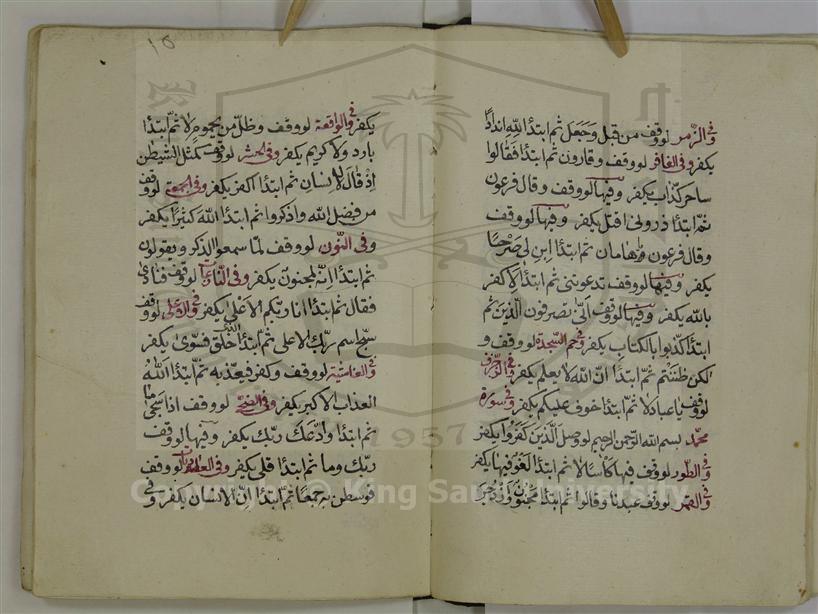 وفى الزمر لو وقف من قبل وجعل ثم ابتدأ لله اندادا
يكفر وفى الغافر لو وقف وقارون ثم ابتدأ فقالوا
ساحر كذاب يكفر وفيها لو وقف وقال فرعون
ثم ابتدأ ذرونى اقتل يكفر وفيها لو وقف
وقال فرعون وهامان ثم ابتدأ ابن لى صرحا
يكفر وفيها لو وقف تدعوننى ثم ابتدأ لاكفر
بالله يكفر وفيها لو وقف انى تصرفون الذين ثم
ابتدأ كذبوا بالكتاب يكفر وفى حم السجدة لو وقف و
لكن ظننتم ثم ابتدأ ان الله لا يعلم يكفر وفى الزخرف
لو وقف يا عباد لا ثم ابتدأ خوف عليكم يكفر وفى سورة
محمد بسم الله الرحمن الرحيم لو وصل الذين كفروا يكفر
وفى الطور لو وقف فيها كأسا لا ثم ابتدأ لغو فيها يكفر
وفى القمر لو وقف عبدنا وقالوا ثم ابتدأ مجنون وازدجر
١٥
يكفر وفى الواقعة لو وقف وظل من يحموم لا ثم ابتدأ
بارد ولا كريم يكفر وفى الحشر لو وقف كمثل الشيطن
اذ قال للانسان ثم ابتدأ اكفر يكفر وفى الجمعة لو وقف
من فضل الله واذكروا ثم ابتدأ الله كثيرا يكفر
وفى النون لو وقف لما سمعوا الذكر ويقولون
ثم ابتدأ انه لمجنون يكفر وفى النازعات لو وقف فنادى
فقال ثم ابتدأ انا ربكم الاعلى يكفر وفى الاعلى لو وقف
سبح اسم ربك الاعلى ثم ابتدأ الذى خلق فسوى يكفر
وفى الغاشية لو وقف وكفر فيعذبه ثم ابتدأ الله
العذاب الاكبر يكفر وفى الضحى لو وقف اذا سجى ما
ثم ابتدأ ودعك ربك يكفر وفيها لو وقف
ربك وما ثم ابتدأ قلى يكفر وفى العاديات لو وقف
فوسطن به جمعا ثم ابتدأ ان الانسان يكفر وفى
1957
Copyright © King Saud University